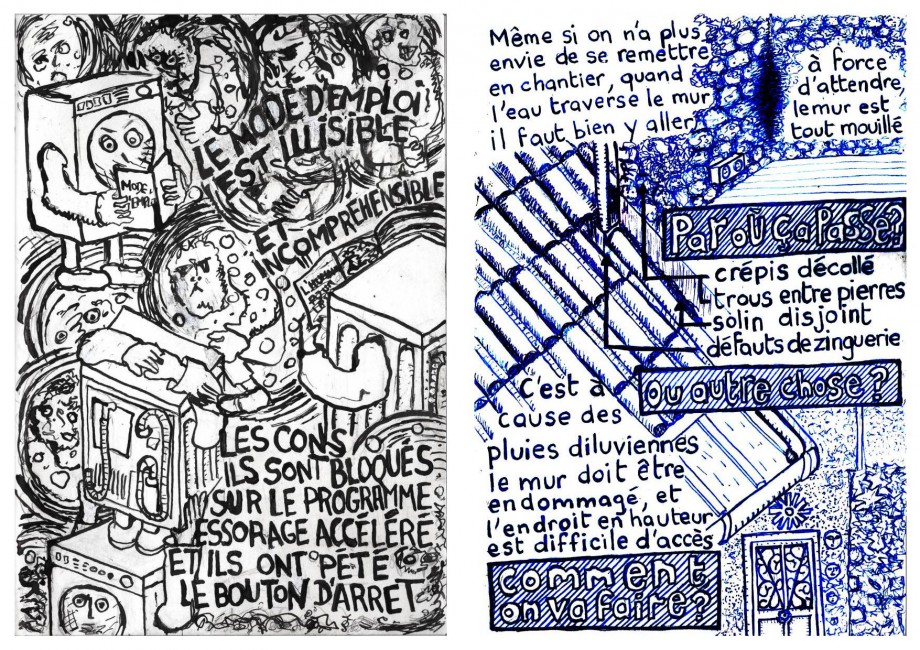 LE MODE D'EMPLOI
EST ILLISIBLE
ET
INCOMPRÉHENSIBLE
MODE
D'EMPLOI
LES CONS
ILS SONT BLOQUÉS
SUR LE PROGRAMME
ESSORAGE ACCÉLÉRÉ
ET ILS ONT PÉTÉ
LE BOUTON D'ARRET
Même si on n'a plus
envie de se remettre
en chantier, quand
l'eau traverse le mur
il faut bien y aller
à force
d'attendre,
le mur est
tout mouillé
Par où ça passe?
crépis décollé
trous entre pierres
solin disjoint
défauts de zinguerie
ou autre chose?
C'est à
cause des
pluies diluviennes
le mur doit être
endommagé, et
l'endroit en hauteur
est difficile d'accès
comment
on va faire?